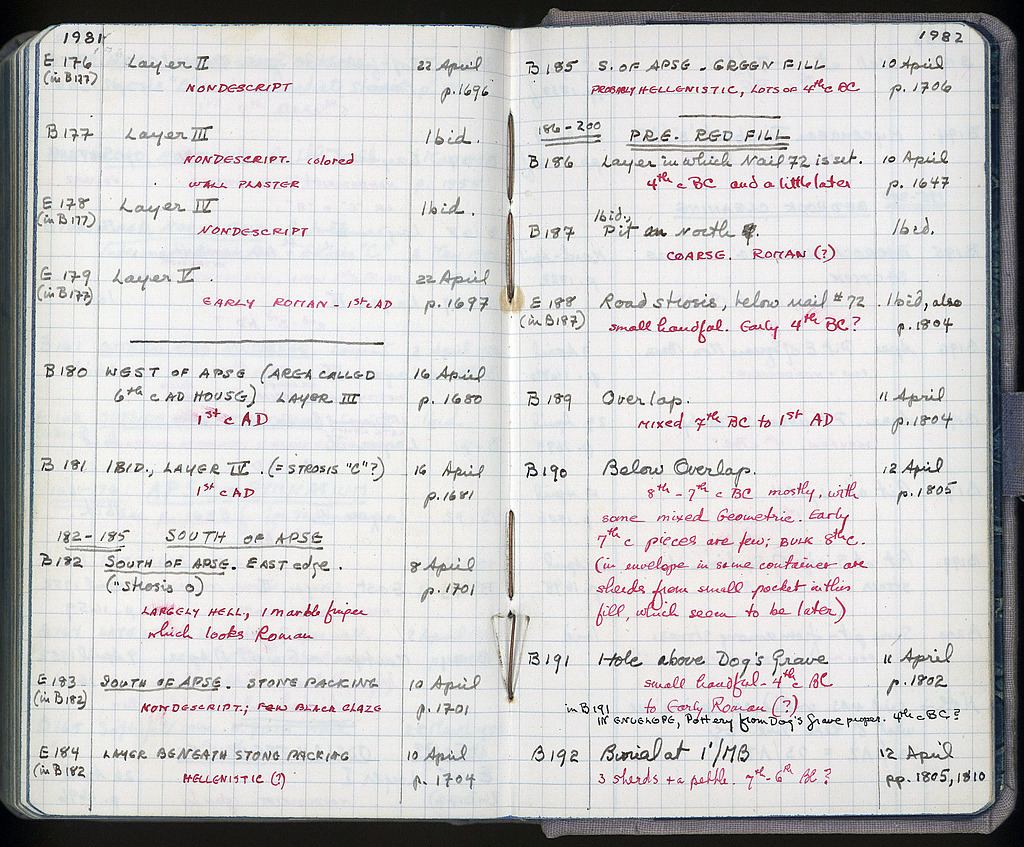 1981
E 176 Layer II 22 April
(in B177) NONDESCRIPT p.1696
B177 Layer III Ibid.
NONDESCRIPT. colored
WALL PLASTER
E 178 Layer IV Ibid.
(in B177) NONDESCRIPT
E 179 Layer V. 22 April
(in B177) EARLY ROMAN - 1st c AD p.1697
B180 WEST OF APSE (AREA CALLED 16 April
6th c AD HOUSE) LAYER III p. 1680
1st c AD
B 181 IBID., LAYER IV. (= STROSIS "C"?) 16 April
1st c AD p.1681
182-185 SOUTH OF APSE
B182 SOUTH OF APSE. EAST edge. 8 April
("strosis o) p.1701
LARGELY HELL, 1 marble finger
which looks Roman
E 183 SOUTH OF APSE. STONE PACKING 10 April
(in B182) NONDESCRIPT; FEW BLACK GLAZE p.1701
E 184 LAYER BENEATH STONE PACKING 10 April
(in B182 HELLENISTIC (?) p. 1704
1982
B185 S. OF APSE - GREEN FILL 10 April
PROBABLY HELLENISTIC, LOTS OF 4th c BC p. 1706
186-200 PRE. RED FILL
B186 Layer in which Nail 72 is set. 10 April
4th c BC and a little later p. 1647
Ibid.,
B187 Pit on North. Ibid.
COARSE. ROMAN (?)
E 188 Road strosis, below nail #72 Ibid, also
(in B187) small handful. Early 4th BC? p.1804
B189 Overlap. 11 April
MIXED 7th BC to 1st AD p.1804
B190 Below Overlap. 12 April
8th - 7th c BC mostly, with p.1805
some mixed Geometric. Early
7th c pieces are few; BULK 8th c.
(in envelope in same container are
sherds from small pocket within
fill, which seem to be later)
B191 Hole above Dog's Grave 11 April
small handful - 4th c BC p.1802
to Early Roman (?)
in B191
IN ENVELOPE, Pottery from Dog's Grave proper. 4th c BC?
B192 Burial at 1'/MB 12 April
3 sherds + a pebble. 7th-6th BC? pp.1805,1810